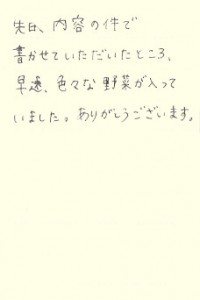 先日、内容の件で
書かせていただいたところ、
早速、色々な野菜が入って
いました。ありがとうございます。